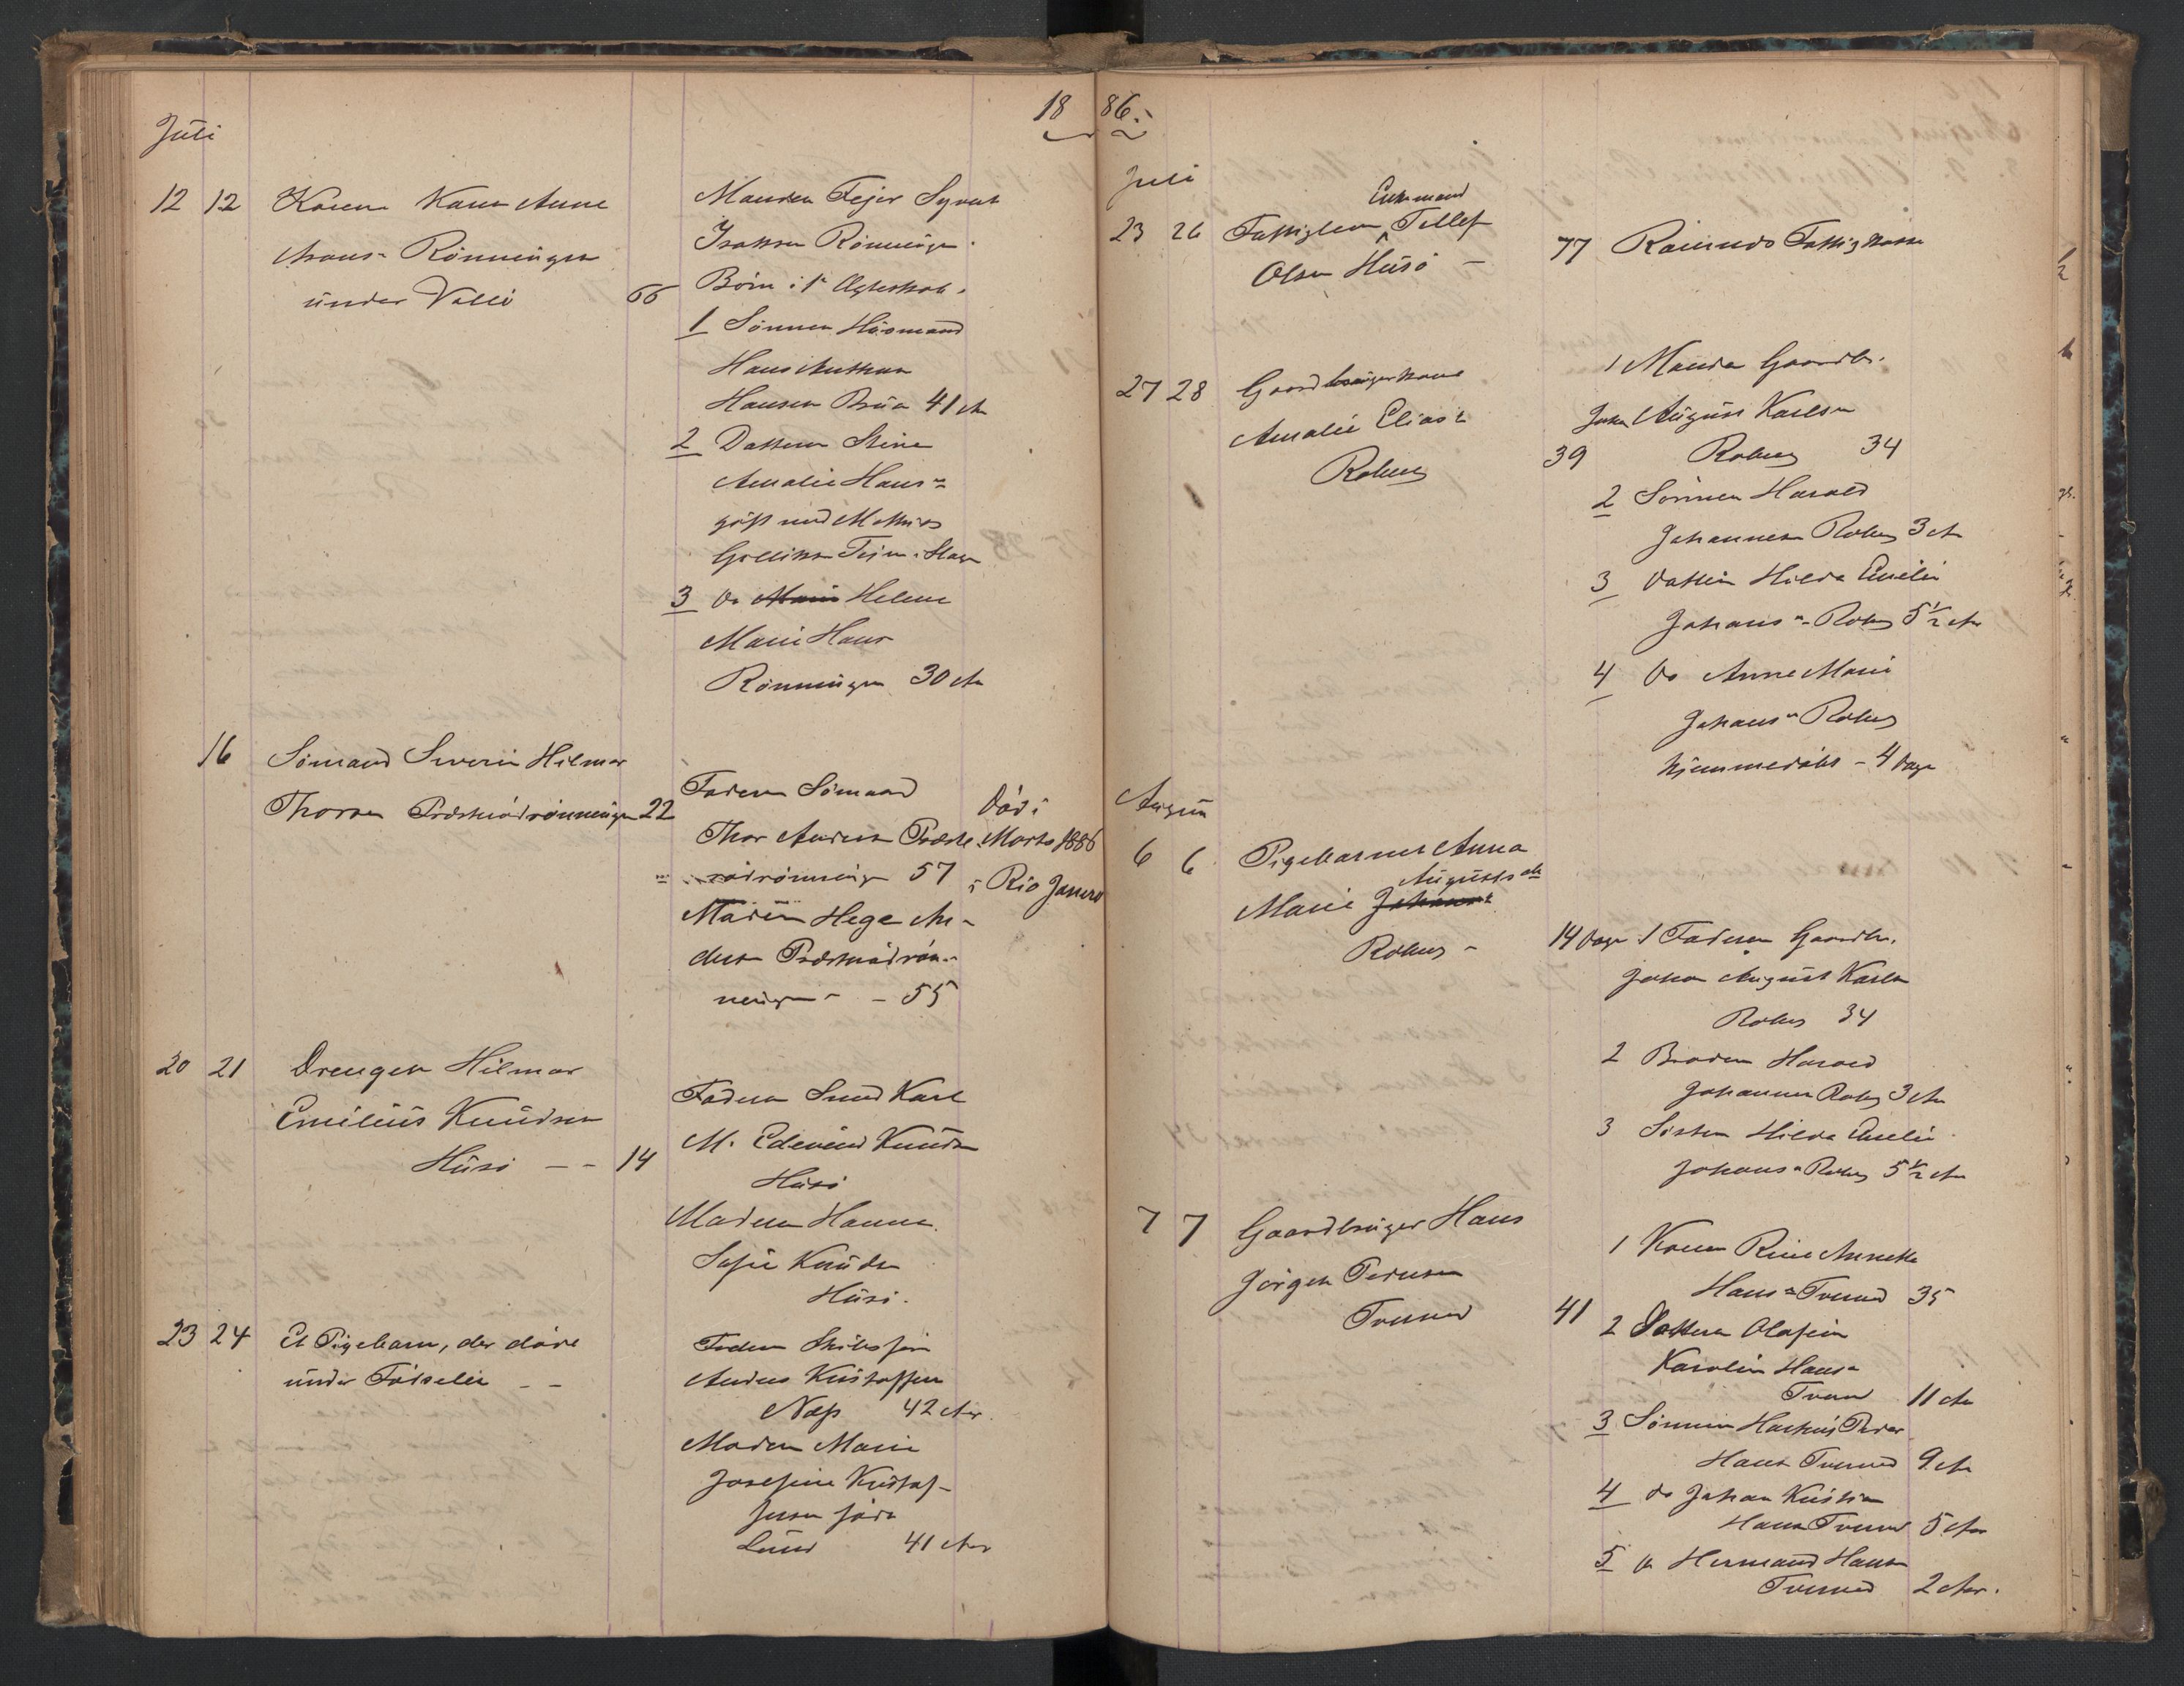 18 86.
Juli
12 12 Konen Karen Anne
Hans Rönningen
under Vallö 66
Manden Fejer Syvert
Isaksen Rönningen
Börn i 1ste Ægteskab.
1 Sönnen Husmand
Hans Anthon
Hansen Brua 41 Ar
2 Datteren Stine
Amalie Hans
gift med Mathias
Gulliksen Teien i Slagen
3 do Marie Helene
Marie Hans
Rönningen 30 Ar
16 Sömand Severin Hilmar
Thorsen Præsterödrönningen 22
Faderen Sömand
Thor Andersen Præste
rödrönningen 57
Moderen Hege An-
ders Præsterödrön-
ningen - 55
Död i
Marts 1886
i Rio Janero
20 21 Drengen Hilmar
Emilius Knudsen
Husö - - 14
Faderen Smed Karl
M. Edevind Knudsen
Husö
Moderen Hanna
Sofie Knudsen
Husö.
23 24 Et Pigebarn, der döde
under Födselen - -
Faderen
Anders Kristoffersen
Næs 42 Ar.
Moderen Marie
Josefine Kristof-
fersen föd
Lund 41 Ar
Juli
23 26 Fattiglem Enkemand Tellef
Olsen Husö - 77 Ramnæs Fattigkasse
27 28 Gaardbrugerkone
Amalie Elias
Roberg 39
1 Manden Gaardbr.
Johan August Karlsen
Roberg 34
2 Sönnen Harald
Johannesen Roberg 3 Ar
3 Datteren Hilda Emelie
Johans Roberg 5 1/2 Ar
4 do Anne Marie
Johans Roberg
hjemmedöbt - 4 Dage
August
6 6 Pigebarnet Anna
Marie Johans Augusts
Roberg - 14 Dage
1 Faderen Gaardbr.
Johan August Karlsen
Roberg 34
2 Broderen Harald
Johannesen Roberg 3 Ar
3 Söster Hilda Emelie
Johans Roberg 5 1/2 Ar
7 7 Gaardbruger Hans
Jörgen Pedersen
Tveiten 41
1 Konen Rine Annette
Hans 35
2 Datteren Olafine
Karoline Hans
11 Ar
3 Sönnen Peder
Hans 9 Ar
4 do Johan Kristian
Hans 5 Ar
5 do Hermand Hans
2 Ar.